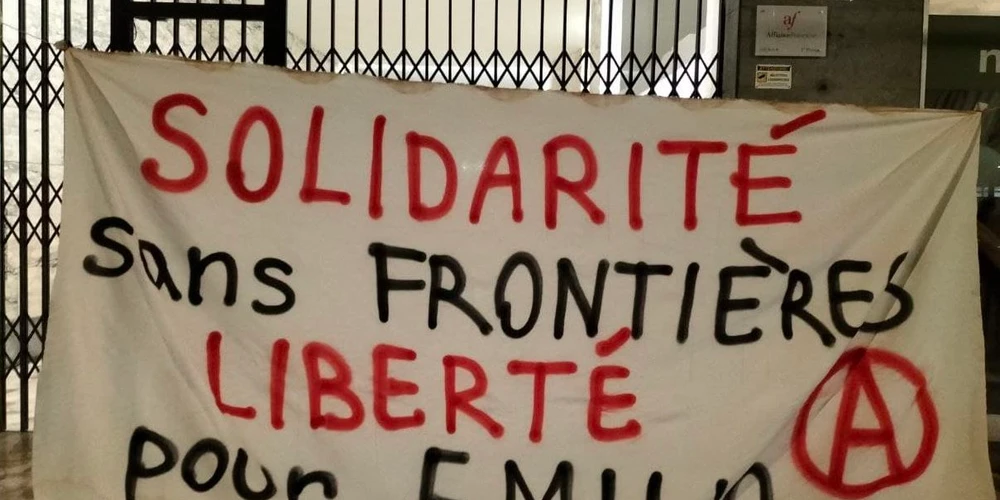 af
AllianceFrançaise
SOLIDARITÉ
sans FRONTIÈRES
LIBERTÉ
A
pour